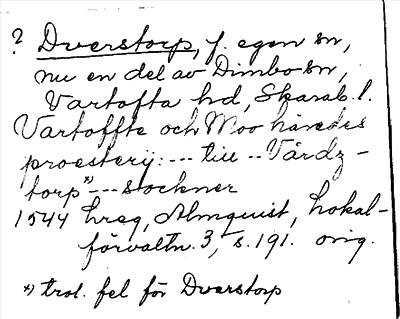 ? Dverstorp, f. egen sn,
nu en del av Dimbo sn,
Vartofta hd, Skarab. l.
Vartoffte och Moo häredes
proesterij: --- till -- Vårdz-
torp *) --- sockner
1544 hreg, Almquist, Lokal-
förvaltn. 3, s. 191. orig.
*) trol. fel för Dverstorp